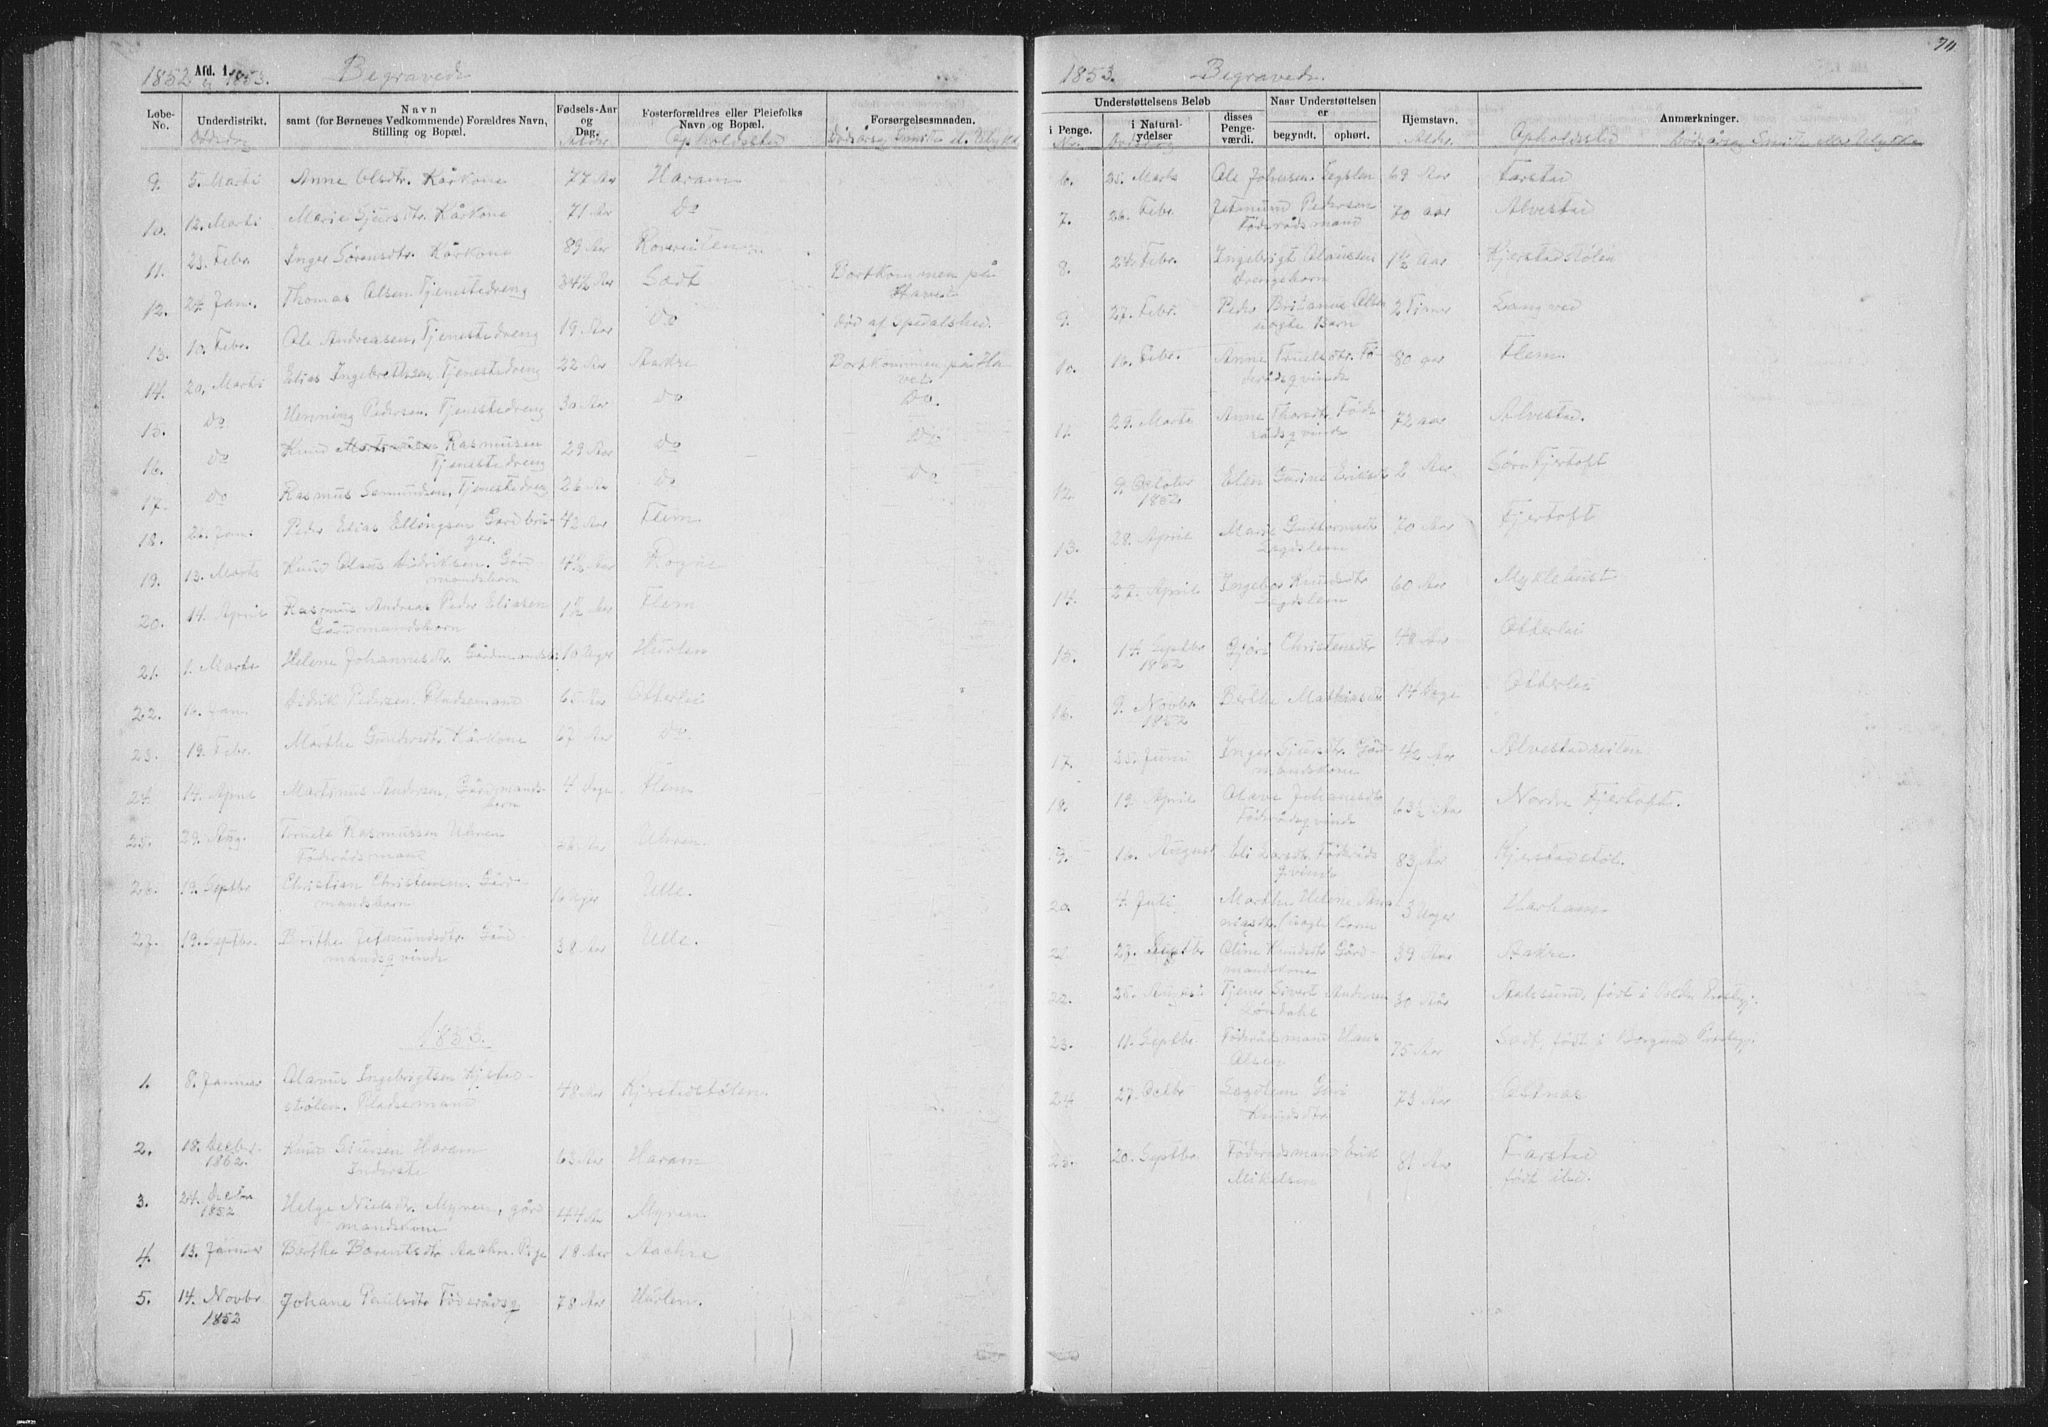 1852 Afd. 1. & 1853. Begravede
Løbe-No. Underdistrikt. Navn samt (for Børnenes Vedkommende) Forældres Navn, Stilling og Bopæl. Fødsels-Aar og Dag. Fosterforældres eller Pleiefolks Navn og Bopæl. Forsørgelsesmaaden.
Dødsdag Alder Opholdssted Dødsårsag
9. 5. Marts Anne Olsdtr. Kårkone 77 Aar Haram
10. 12. Marts Marie Sjursdtr. Kårkone 71 Aar Do
11. 23. Febr. Inger Sørensdtr. Kårkone 89 Aar
12. 24. Jan. Thomas Olsen, Tjenestedreng 34½ Aar Sødt Bortkommen på Havet
13. 10. Febr. Ole Andreasen, Tjenestedreng 19 Aar Do død af Spedalskhed.
14. 20. Marts Elias Ingebretsen, Tjenestedreng 22 Aar Aakre Bortkommen på Havet.
15. Do Henning Pedersen, Tjenestedreng 30 Aar Do Do.
16. Do Knud Rasmusen Tjenestedreng 29 Aar Do Do
17. Do Rasmus Semundsen, Tjenestedreng 26 Aar Do Do
18. 26. Jan. Peder Elias Ellingsen Gårdbruger. 42 Aar Flem
19. 13. Marts Knud Olaus Didriksen. Gårdmandsbarn 4½ Aar Rogne
20. 14. April Rasmus Andreas Peder Eliasen
Gårdmandsbarn 1½ Aar Flem
21. 1. Marts Helene Johannesdtr. Gårdmandsb. 16 Uger Hurlen
22. 16. Jan. Didrik Pedersen. Pladsemand 65 Aar Otterlei
23. 19. Febr. Marthe Gundersdtr. Kårkone 67 Aar Do.
24. 14. April Martinus Andersen, Gårdmandsbarn 4 Dage Flem
25. 29. Aug. Truels Rasmussen Uhren
Föderådsmand Aar Uhren.
26. 19. Septbr Christian Christensen. Gårdmandsbarn 16 Uger Ulle.
27. 19. Septbr. Berithe Jetmundsdtr. Gårdmandsqvinde 38 Aar Ulle.
1853.
1. 8. Januar Olaus Ingebrigtsen Kjerstadstølen. Pladsemand 48 Aar Kjerstadstølen.
2. 18. Decbr. 1852. Knud Sjursen Haram
Inderste 63 Aar Haram
3. 24. Decbr 1852 Helge Nielsdtr. Myren, gårdmandskone 44 Aar Myren
4. 13. Januar Berthe Berentsdtr Aachre. Pige 18 Aar Aachre
5. 14. Novbr 1852 Johane Paulsdtr Föderådsq 78 Aar Hurlen.
1853. Begravede. 74
Understøttelsens Beløb Naar Understøttelsen er Hjemstavn. Anmærkninger.
i Penge. i Naturalydelser disses Pengeværdi. begyndt. ophørt.
Nr. Dødsdag Alder Opholdssted Dødsårsag
6. 25. Marts Ole Johnsen. Legslem 69 Aar Farstad
7. 26. Febr. Jetmund Pedersen
Föderådsmand 70 aar Alvestad
8. 24. Febr. Ingebrigt Olaussen
Drengebarn 1½ Aar Kjerstadstølen
9. 27. Febr. Peder Britanus Olsen
uægte Barn 2 Timer Langved
10. 16. Febr. Anne Truelsdtr. Föderådsqvinde 80 aar Flem.
11. 29. Marts Anne Thorsdtr Föderådsqvinde 72 aar Alvestad.
12. 9. October 1852 Elen Gurine Eriksdt 2 Aar Søre Fjertoft
13. 28. April Marie Guttormsdtr
Legdslem 70 Aar Fjertoft
14. 27. April Ingebor Knudsdtr
Legdslem 60 Aar Myklebust
15. 14. Septbr 1852 Gjøri Christensdtr 48 Aar Otterlei
16. 9. Novbr. 1852 Berthe Mathiasdtr 14 Dage Otterlei
17. 25. Juni Inger Sjursdtr. Gårdmandskone 42 Aar Alvestad
18. 19. April Olave Johanesdtr
Föderådsqvinde 63½ Aar Nordre Fjertoft.
19. 16. August Eli Larsdtr. Föderådsqvinde 83 Aar Kjerstadstøl.
20. 4. Juli Marthe Helene 3 Uger Harham
21. 27. Septbr Oline Knudsdtr Gårdmandskone 39 Aar Aakre.
22. 28. August Tjener Sivert Andersen 30 Aar Aalesund, født i Prestegj.
23. 11. Septbr. Föderådsmand Hans
Olsen 75 Aar Sødt, født i Borgund Prestegj.
24. 27. Octbr Legdlem Guri
Knudsdtr 73 Aar Østnæs
25. 20. Septbr. Föderådsmand Erik
Mikelsen 81 Aar Farstad
født ibid.